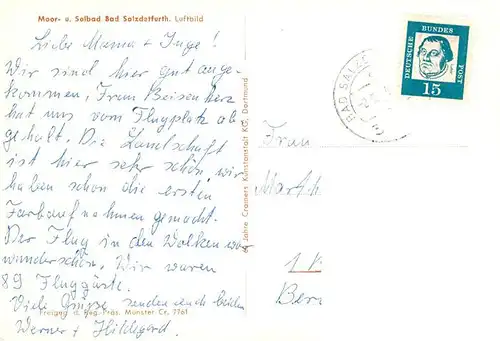 Moor- u. Solbad Bad Salzdetfurth. Luftbild
Liebe Mama + Inge!
Wir sind hier gut ange-
kommen, Frau Beisenherz
hat uns vom Flugplatz ab
geholt. Die Landschaft
ist hier sehr schön, wir
haben schon die ersten
Farbaufnahmen gemacht.
Der Flug in den Wolken war
wunderschön. Wir waren
89 Fluggäste.
Viele Grüsse senden euch beiden
Werner + Hildegard.
Freigeg. d. Reg. Präs. Münster Cr. 7761
Jahre Cramers Kunstanstalt KG, Dortmund
BAD SALZ
DEUTSCHE BUNDES POST
15
Frau
Marth
1
Ber